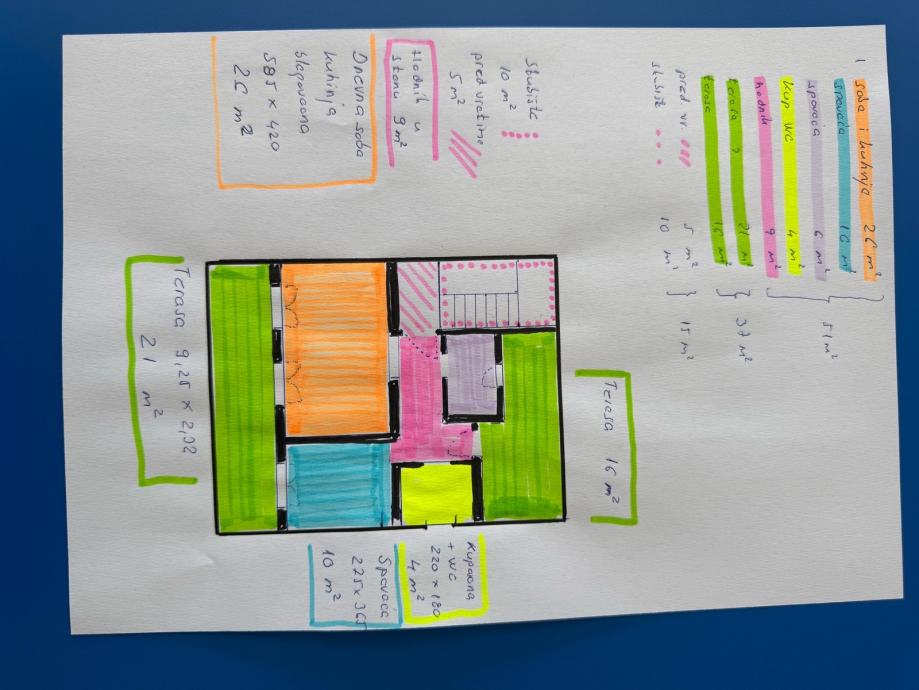 soba i kuhinja 26 m²
spavaća 10 m²
spavaća 6 m²
kup WC 4 m²
hodnik 9 m²
51 m²
terasa 21 m²
terasa 16 m²
37 m²
pred vr. 5 m²
stubišt 10 m²
15 m²
stubište
10 m²
pred vratima
5 m²
Hodnik u
stanu 9 m²
Dnevna soba
kuhinja
blagovaona
585 x 420
26 m²
Terasa 16 m²
Kupaona
+ WC
220 x 180
4 m²
Spavaća
225 x 365
10 m²
Terasa 9,25 x 2,02
21 m²